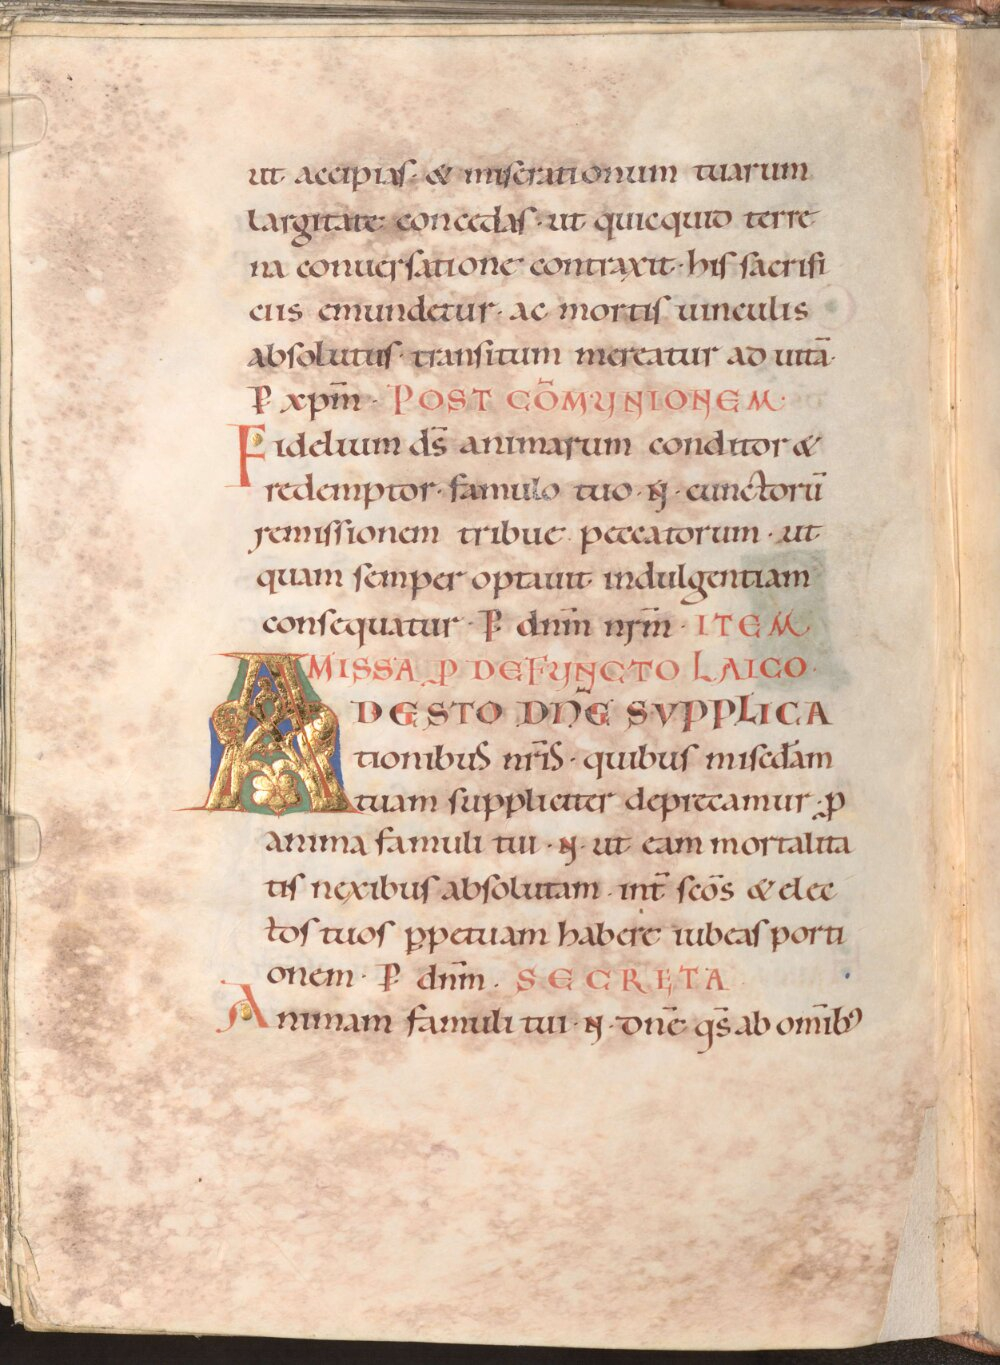 ut accipias· & miserationum tuarum
largitate concedas· ut quicquid terre
na conuersatione contraxit· his sacrifi
ciis emundetur· ac mortis uinculis
absolutus· transitum mereatur ad uitā·
P̄ xp̄m· POST COM̄UNIONEM·
Fidelium ds̄ animarum conditor &
redemptor· famulo tuo· N· cunctorū
remissionem tribue peccatorum· ut
quam semper optauit indulgentiam
consequatur· P̄ dnm̄ nrm̄· ITEM
MISSA ꝓ DEFUNCTO LAICO·
ADESTO DN̄E SVPPLICA
tionibus nr̄is· quibus misedām
tuam suppliciter deprecamur· ꝓ
anima famuli tui· N· ut eam mortalita
tis nexibus absolutam· int̄ scōs & elec
tos tuos ꝑpetuam habere iubeas porti
onem· P̄ dnm̄· SECRETA
Animam famuli tui· N· dnē qs̄ ab omīb⁹